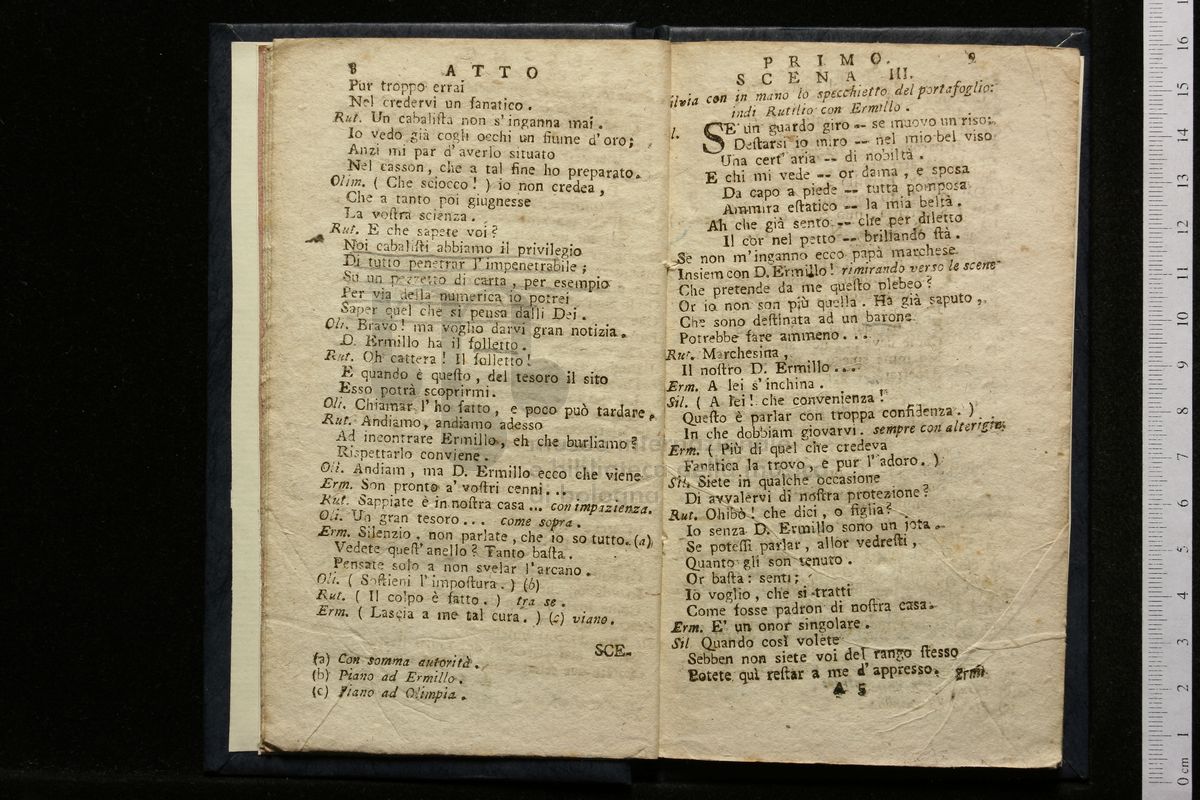 8 ATTO
Pur troppo errai
Nel credervi un fanatico.
Rut. Un cabaliſta non s'inganna mai.
Io vedo già cogli occhi un fiume d'oro;
Anzi mi par d'averlo situato
Nel casson, che a tal fine ho preparato.
Olim. ( Che sciocco! ) io non credea,
Che a tanto poi giugnesse
La voſtra scienza.
Rut. E che sapete voi?
Noi cabaliſti abbiamo il privilegio
Di tutto penetrar l'impenetrabile;
Su un pezzetto di carta, per esempio
Per via della numerica io potrei
Saper quel che si pensa dalli Dei.
Oli. Bravo! ma voglio darvi gran notizia.
D. Ermillo ha il folletto.
Rut. Oh cattera! Il folletto!
E quando è queſto, del tesoro il sito
Esso potrà scoprirmi.
Oli. Chiamar l'ho fatto, e poco può tardare.
Rut. Andiamo, andiamo adesso
Ad incontrare Ermillo, eh che burliamo?
Rispettarlo conviene.
Oli. Andiam, ma D. Ermillo ecco che viene
Erm. Son pronto a' voſtri cenni...
Rut. Sappiate è in noſtra casa... con impazienza.
Oli. Un gran tesoro... come sopra.
Erm. Silenzio, non parlate, che io so tutto. (a)
Vedete queſt'anello? Tanto baſta.
Pensate solo a non svelar l'arcano.
Oli. ( Soſtieni l'impoſtura. ) (b)
Rut. ( Il colpo è fatto. ) tra se.
Erm. ( Lascia a me tal cura. ) (c) viano.
SCE-
(a) Con somma autorità.
(b) Piano ad Ermillo.
(c) Piano ad Olimpia.
PRIMO. 9
SCENA III.
ilvia con in mano lo specchietto del portafoglio:
indi Rutilio con Ermillo.
l. SE' un guardo giro -- se muovo un riso:
Deſtarsi io miro -- nel mio bel viso
Una cert'aria -- di nobiltà.
E chi mi vede -- or dama, e sposa
Da capo a piede -- tutta pomposa
Ammira eſtatico -- la mia beltà.
Ah che già sento -- che per diletto
Il cor nel petto -- brillando ſtà.
Se non m'inganno ecco papà marchese
Insiem con D. Ermillo! rimirando verso le scene
Che pretende da me queſto plebeo?
Or io non son più quella. Ha già saputo,
Che sono deſtinata ad un barone
Potrebbe fare ammeno...
Rut. Marchesina,
Il noſtro D. Ermillo...
Erm. A lei s'inchina.
Sil. ( A lei! che convenienza!
Queſto è parlar con troppa confidenza. )
In che dobbiam giovarvi. sempre con alterigia.
Erm. ( Più di quel che credeva
Fanatica la trovo, e pur l'adoro. )
Sil. Siete in qualche occasione
Di avvalervi di noſtra protezione?
Rut. Ohibò! che dici, o figlia?
Io senza D. Ermillo sono un jota.
Se poteſſi parlar, allor vedreſti,
Quanto gli son tenuto.
Or baſta: senti;
Io voglio, che si tratti
Come fosse padron di noſtra casa.
Erm. E' un onor singolare.
Sil Quando così volete
Sebben non siete voi del rango ſtesso
Potete quì reſtar a me d'appresso. Erm.
A 5